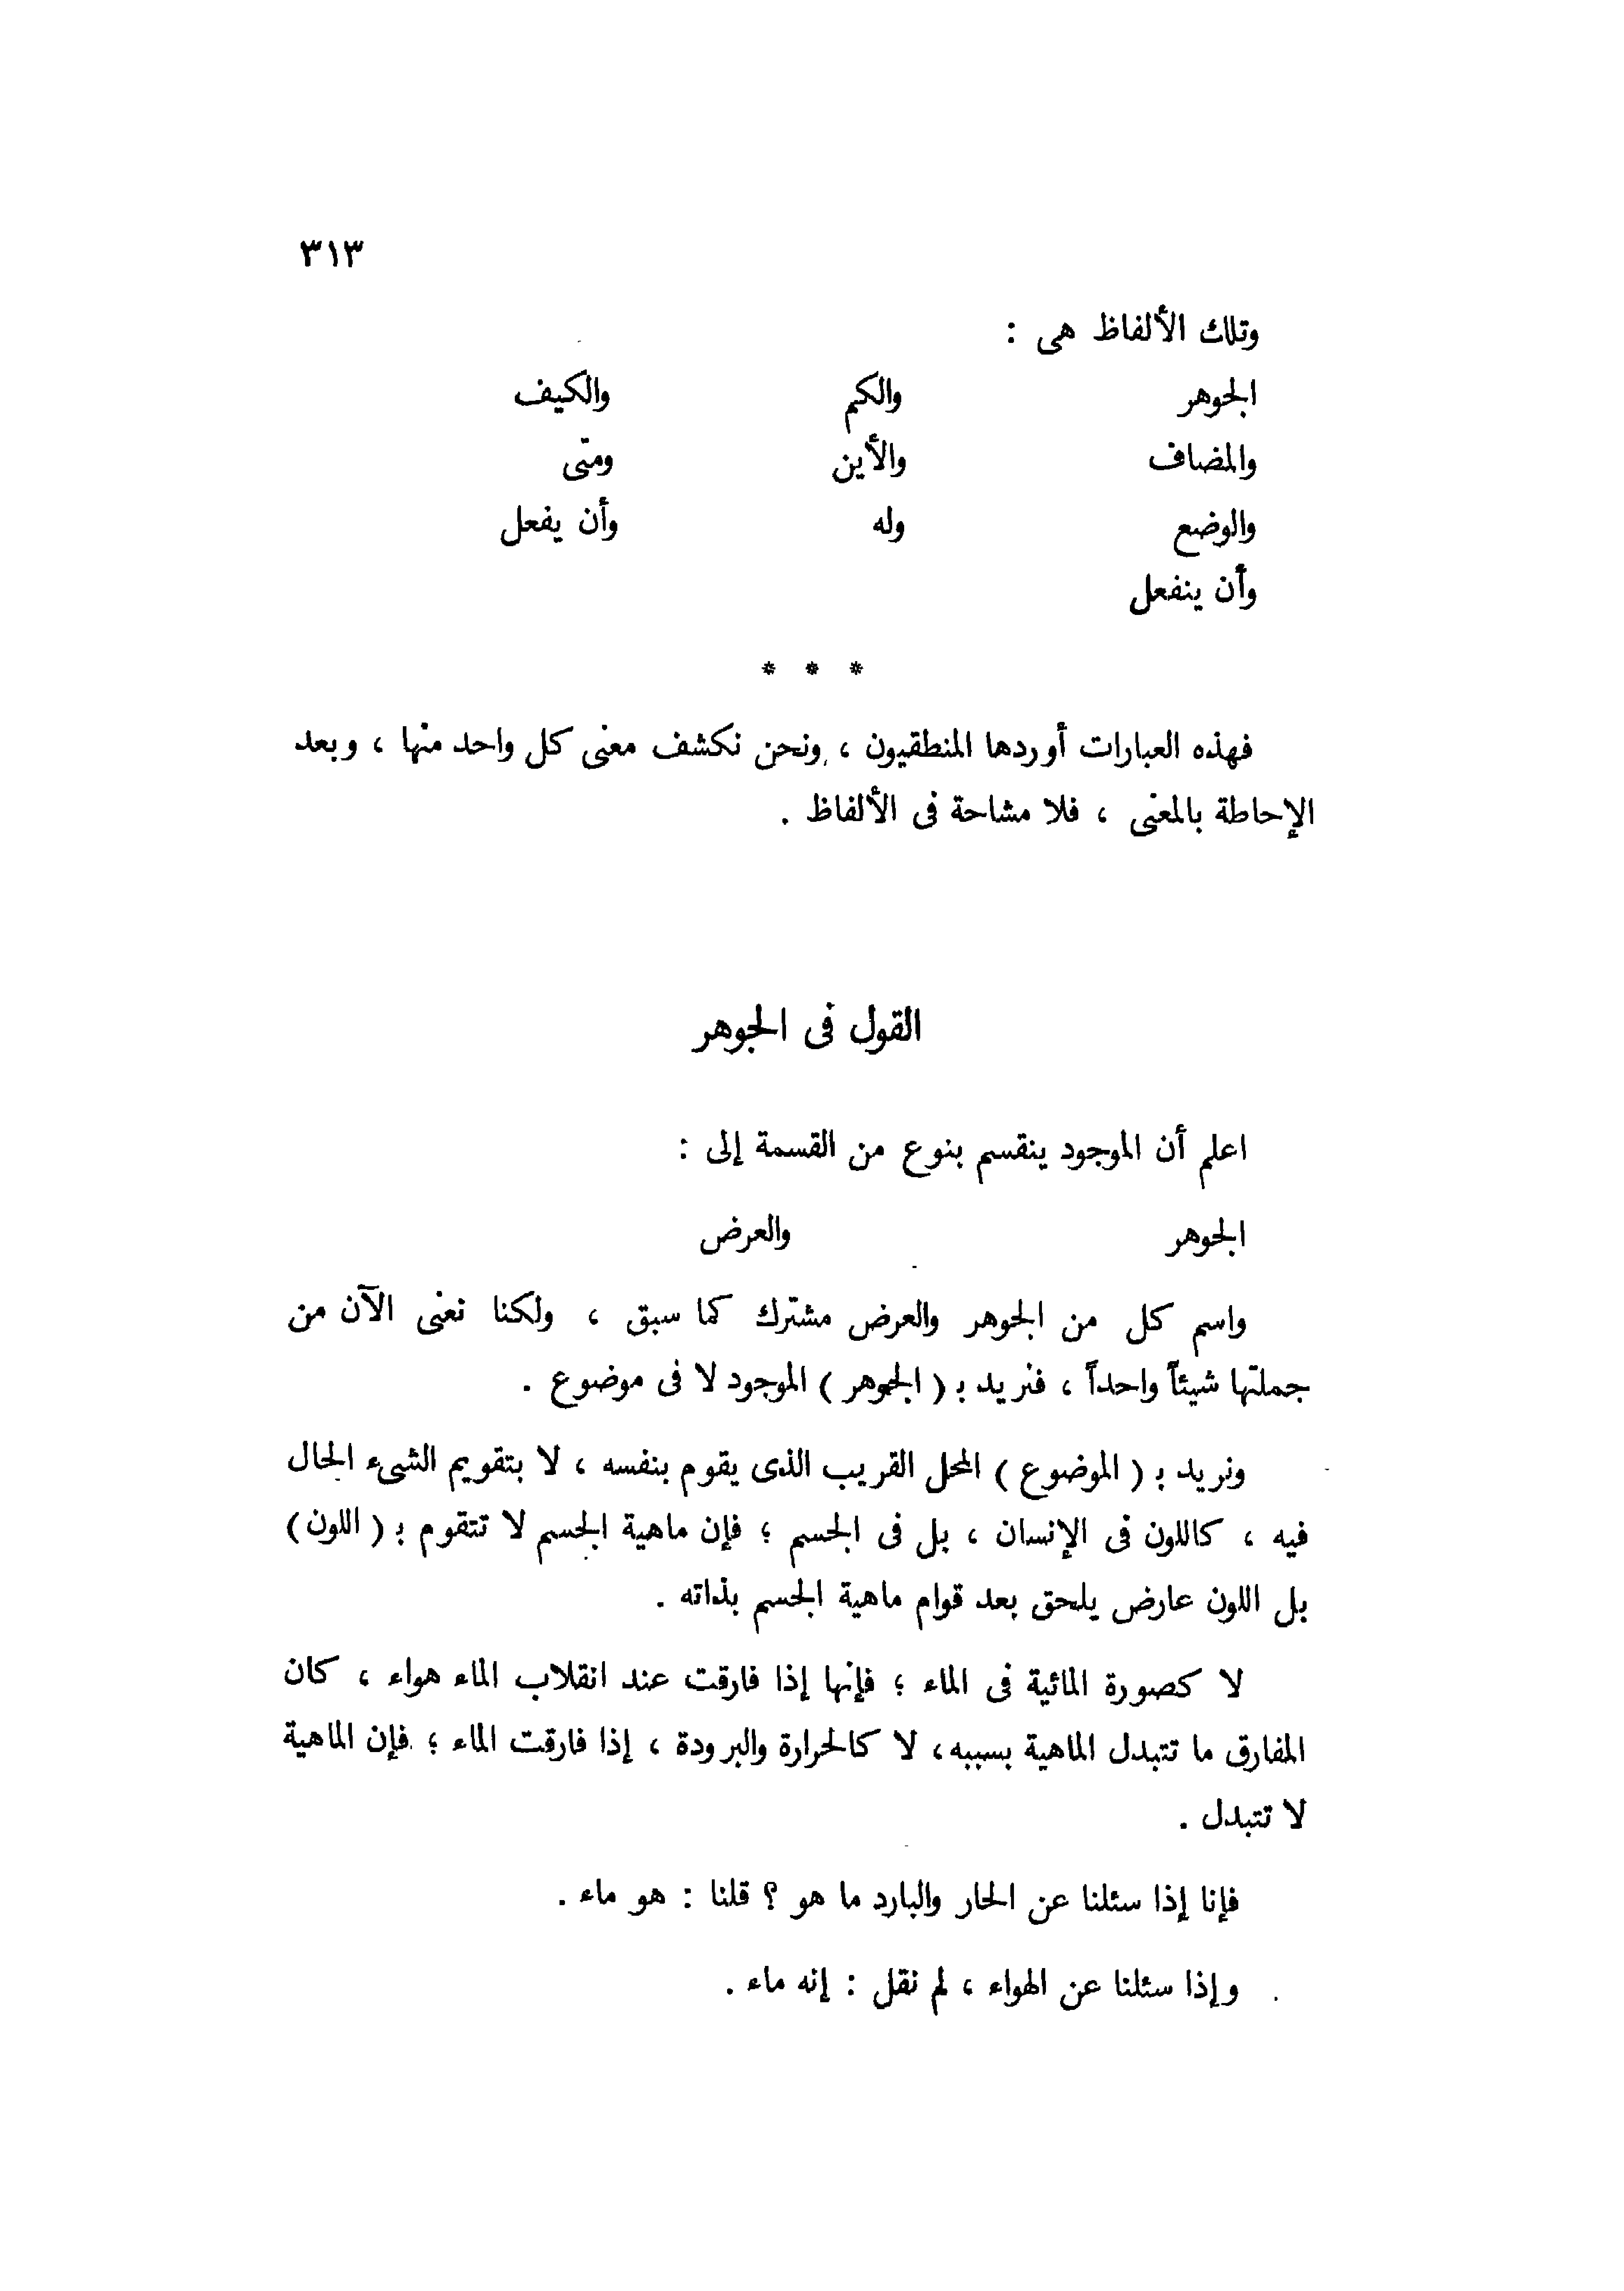 ٣١٣
وتلك الألفاظ هى :
الجوهر والكم والكيف
والمضاف والأين ومتى
والوضع وله وأن يفعل
وأن ينفعل
* * *
فهذه العبارات أوردها المنطقيون ، ونحن نكشف معنى كل واحد منها ، وبعد
الإحاطة بالمعنى ، فلا مشاحة فى الألفاظ .
القول فى الجوهر
اعلم أن الموجود ينقسم بنوع من القسمة إلى :
الجوهر والعرض
واسم كل من الجوهر والعرض مشترك كما سبق ، ولكنا نعنى الآن من
جملتها شيئاً واحداً ، فنريد بـ ( الجوهر ) الموجود لا فى موضوع .
ونريد بـ ( الموضوع ) المحل القريب الذى يقوم بنفسه ، لا بتقويم الشىء الحال
فيه ، كاللون فى الإنسان ، بل فى الجسم ؛ فإن ماهية الجسم لا تتقوم بـ ( اللون )
بل اللون عارض يلحق بعد قوام ماهية الجسم بذاته .
لا كصورة المائية فى الماء ؛ فإنها إذا فارقت عند انقلاب الماء هواء ، كان
المفارق ما تتبدل الماهية بسببه ، لا كالحرارة والبرودة ، إذا فارقت الماء ؛ فإن الماهية
لا تتبدل .
فإنا إذا سئلنا عن الحار والبارد ما هو ؟ قلنا : هو ماء .
وإذا سئلنا عن الهواء ، لم نقل : إنه ماء .